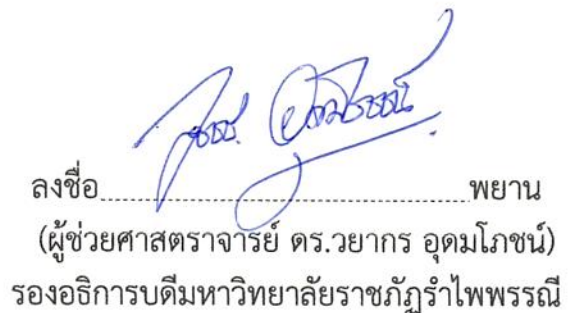 ลงชื่อ.......................................................พยาน
(ผู้ช่วยศาสตราจารย์ ดร.วยากร อุดมโภชน์)
รองอธิการบดีมหาวิทยาลัยราชภัฏรำไพพรรณี